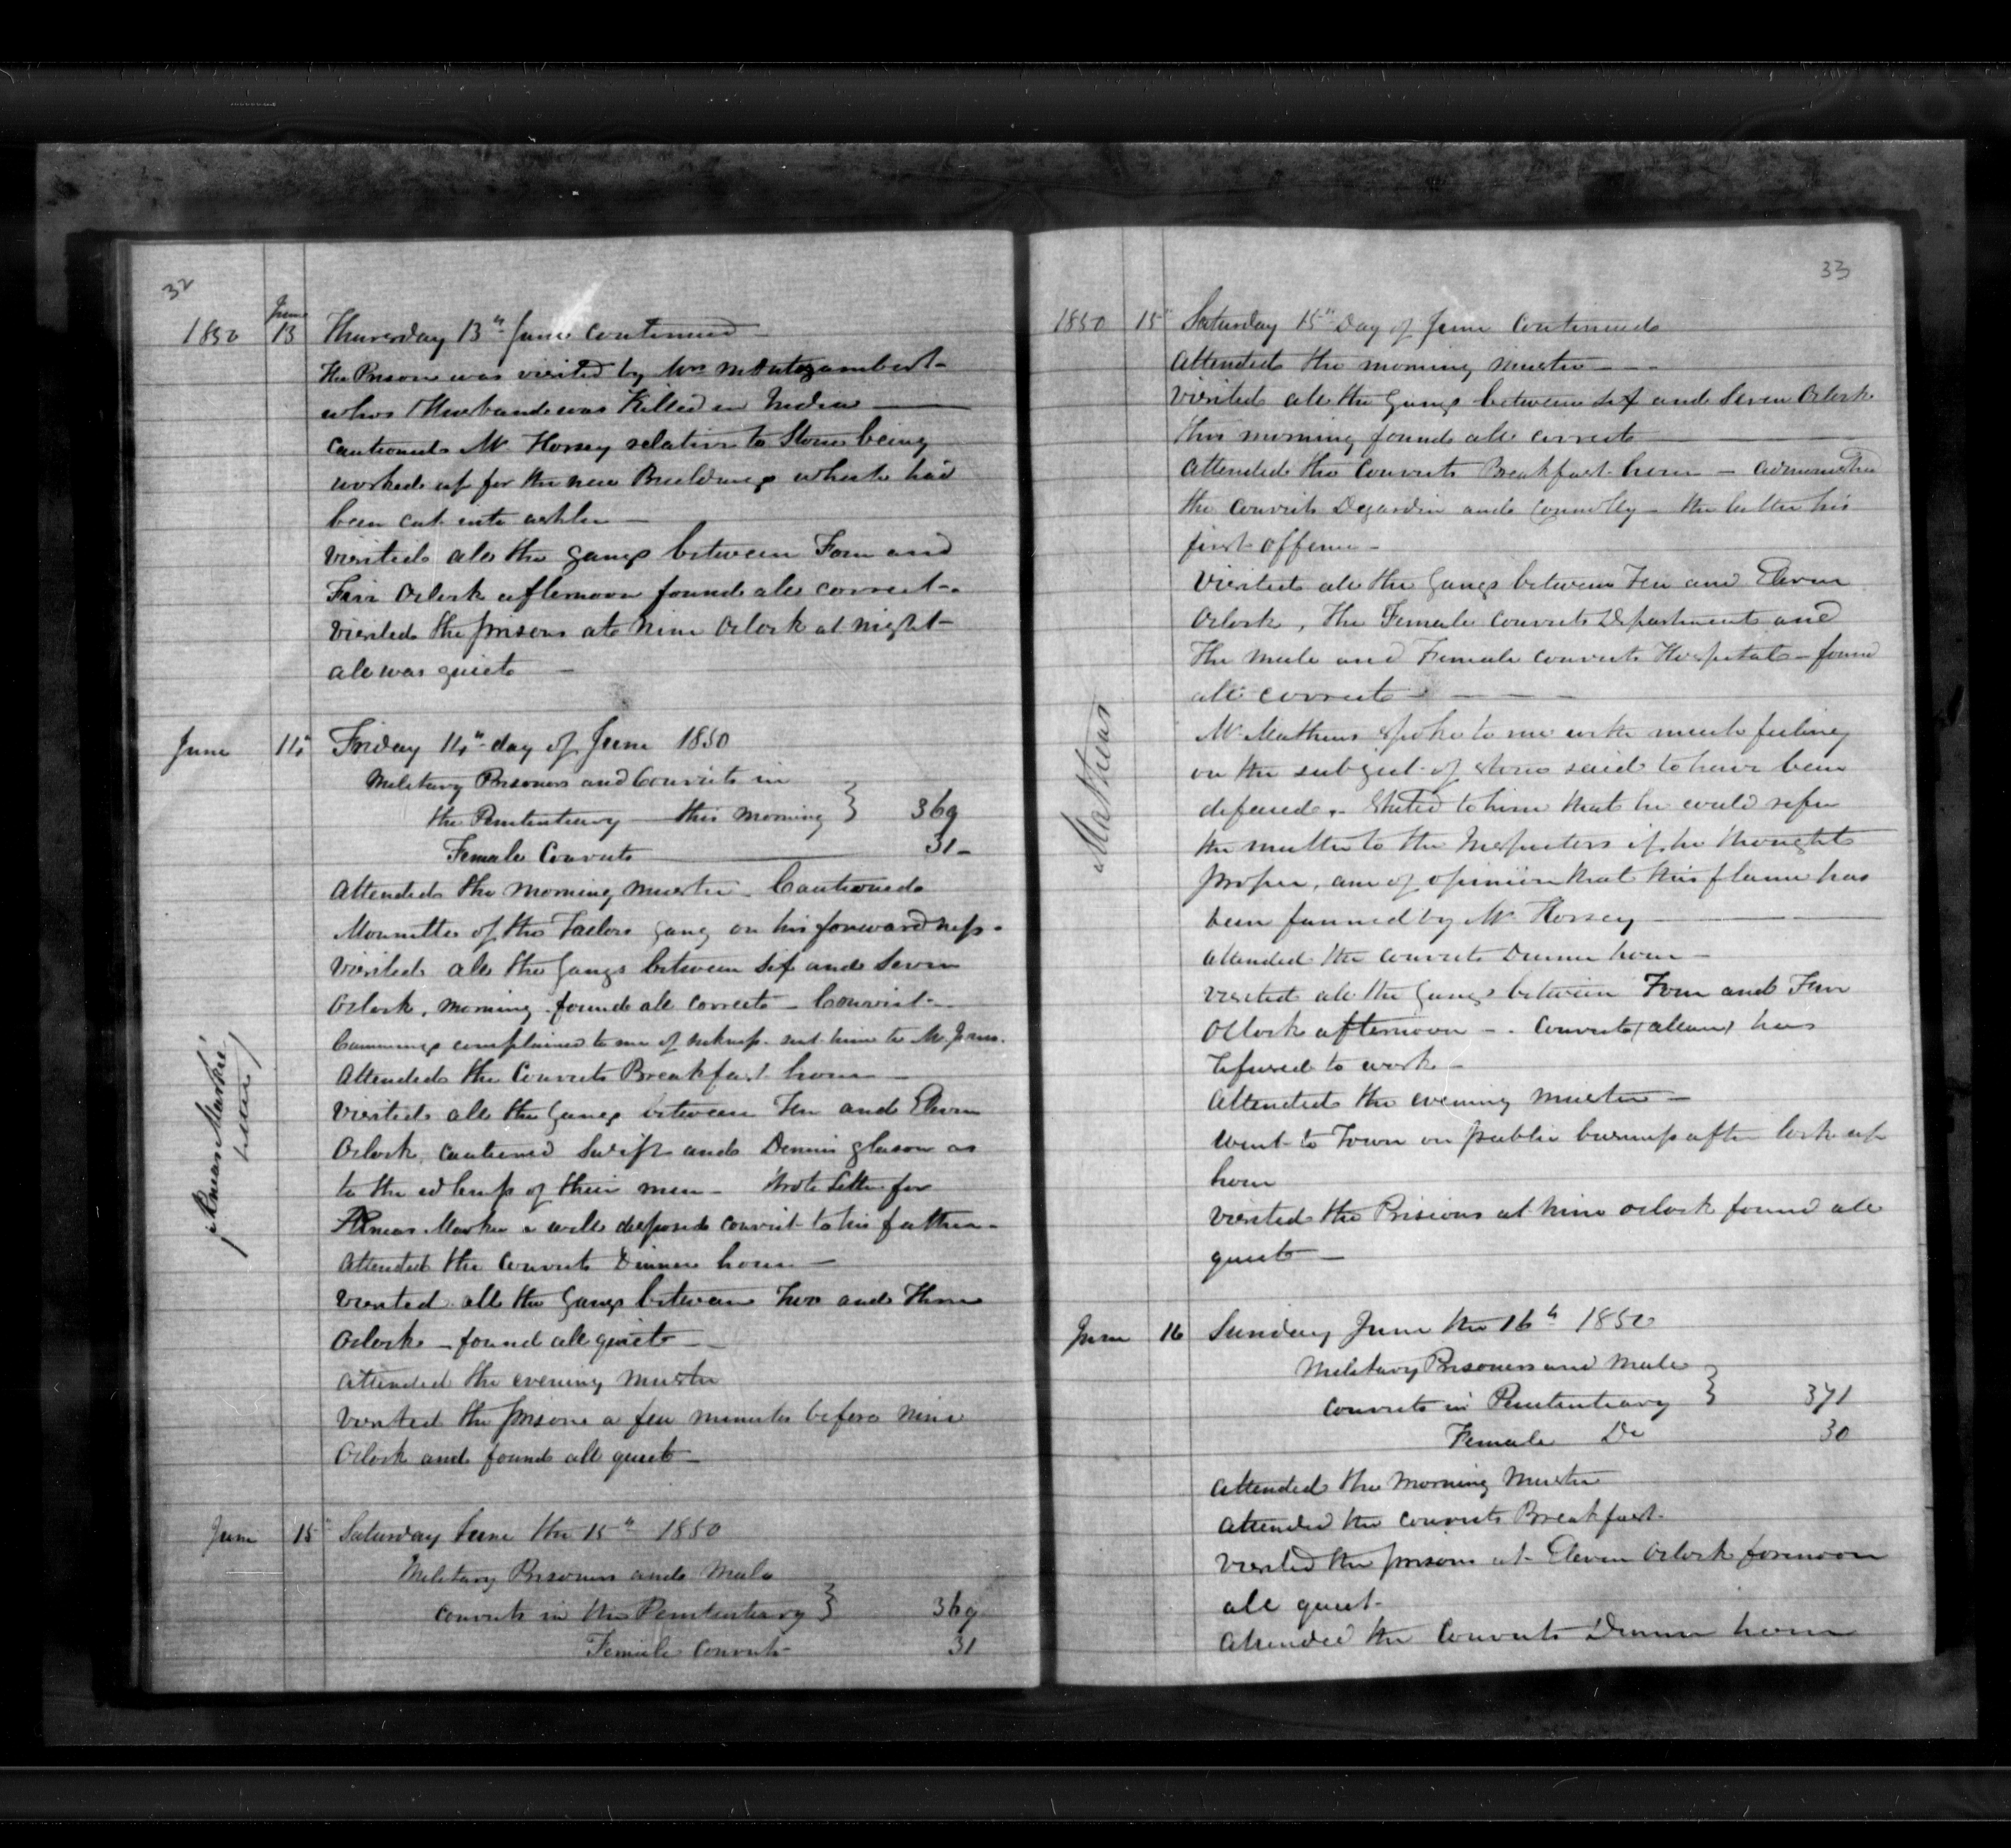 32
June
1850 13 Thursday 13th June continued
The Prison was visited by Mrs Montizambert
whos Husband was Killed in India
Cautioned Mr Horsey relative to Stone being
worked up for the new Buildings which had
been cut into ashler
Visited all the gangs between Four and
Five Oclock afternoon found all correct
Visited the prisons at nine Oclock at night
all was quiet
June 14th Friday 14th day of June 1850
Military Prisoners and Convicts in
the Penitentiary this morning } 369
Female Convicts 31
Attended the morning muster Cautioned
of the Tailors gang on his forwardness
Visited all the Gangs between Six and Seven
Oclock, morning found all correct Convict
Cummings complained to me of sickness sent him to Mr
Attended the Convicts Breakfast hour
Visited all the Gangs between Ten and Eleven
Oclock, cautioned Swift and Dennis Gleason as
to the idleness of their men Wrote letter for
Markie a well disposed convict to his father
Attended the Convicts Dinner hour
Visited all the Gangs between Two and Three
Oclock found all quiet
Attended the evening muster
Visited the prisons a few minutes before nine
Oclock and found all quiet
Markie's
letter
June 15th Saturday June the 15th 1850
Military Prisoners and Male
convicts in the Penitentiary } 369
Female Convicts 31
33
1850 15th Saturday 15th Day of June Continued
Attended the morning muster
Visited all the Gangs between Six and Seven Oclock
this morning found all correct
Attended the Convicts Breakfast hour admonished
the Convicts Degardin and Connolly the latter his
first offence
Visited all the Gangs between Ten and Eleven
Oclock, The Female Convicts Department and
The male and Female Convicts Hospitals found
all correct
Mathews
Mr Mathews spoke to me with much feeling
on the subject of stone said to have been
defaced, Stated to him that he could refer
the matter to the Inspectors if he thought
proper, am of opinion that this flame has
been fanned by Mr Horsey
Attended the Convicts Dinner hour
Visited all the Gangs between Four and Five
Oclock afternoon Convict has
refused to work
Attended the evening muster
Went to Town on public business after lock up
hour
Visited the Prisions at nine oclock found all
quiet
June 16 Sunday June the 16th 1850
Military Prisoners and Male
Convicts in Penitentiary } 371
Female Do 30
Attended the Morning Muster
Attended the Convicts Breakfast
Visited the prisons at Eleven Oclock forenoon
all quiet
Attended the Convicts Dinner hour